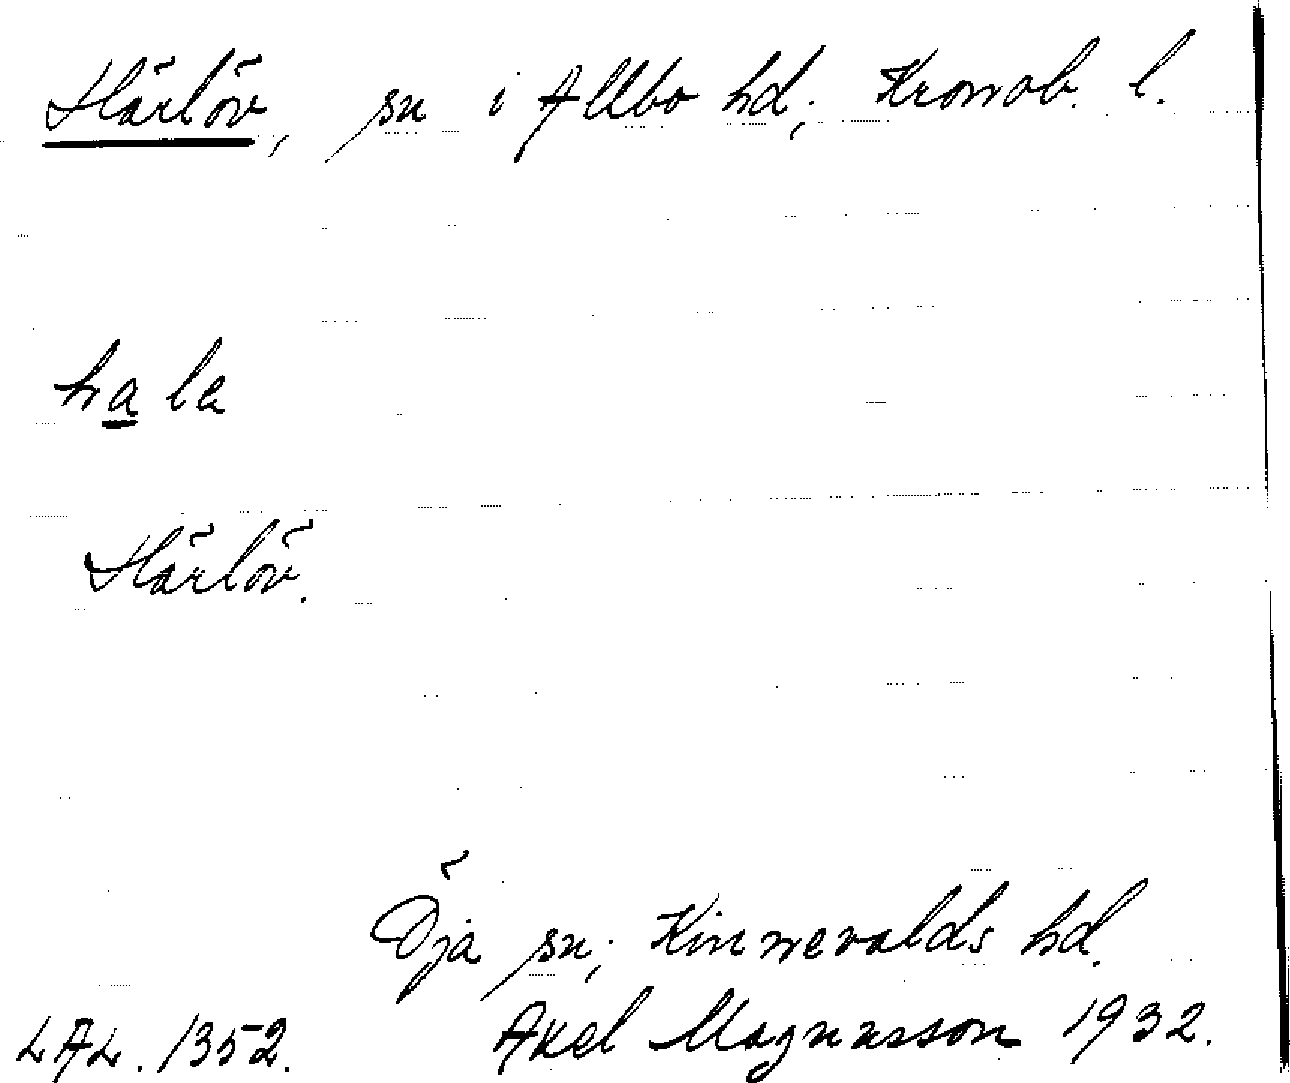 Härlöv, sn i Allbo hd; Kronob. l.
hala
Härlöv.
Öja sn; Kinnevalds hd.
LAL. 1352. Axel Magnusson 1932.